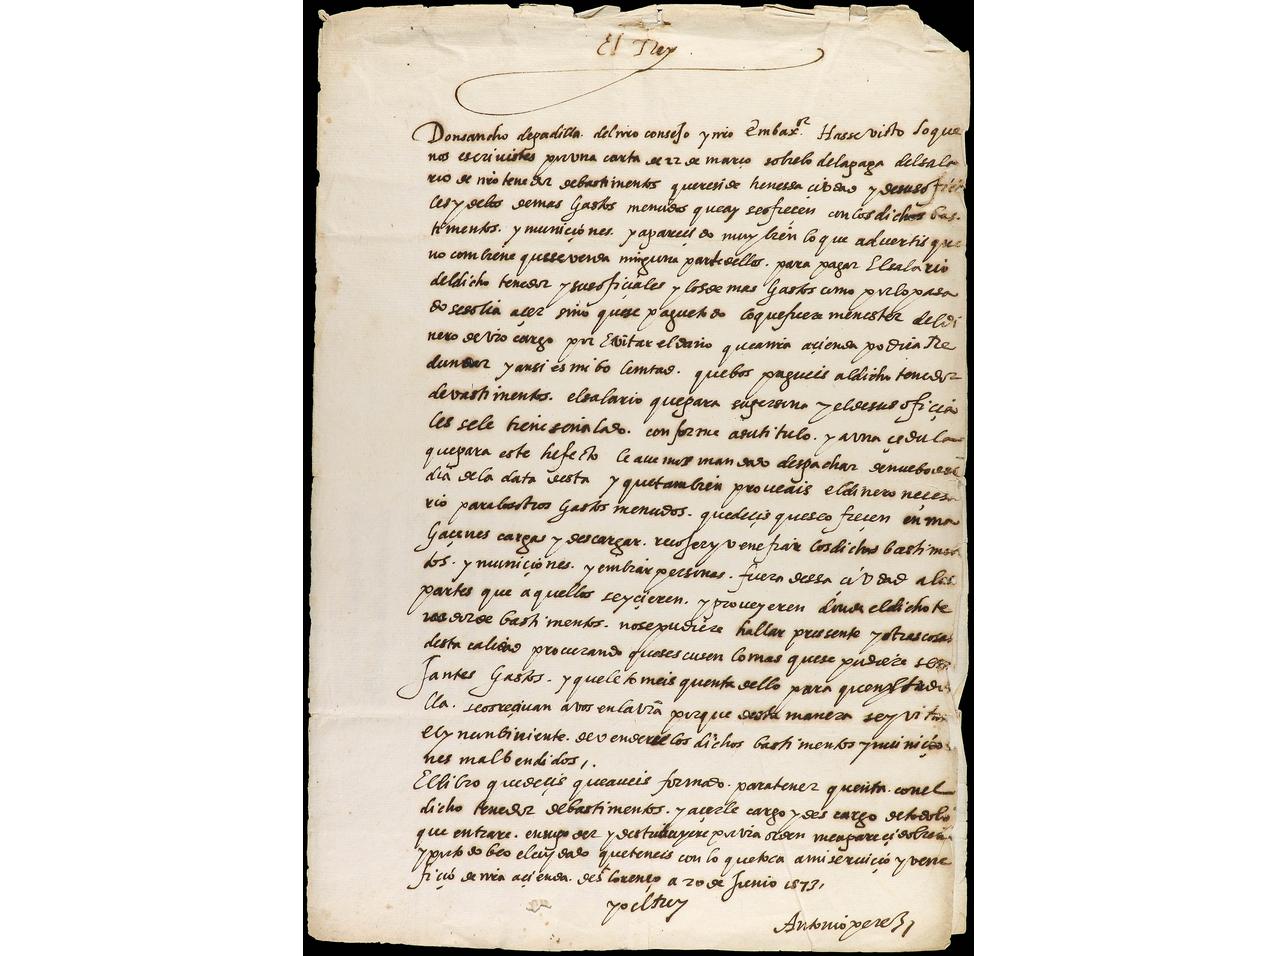 El Rey
Don sancho de padilla. del nro consejo y nro Embaxor. Hasse visto lo que
nos escrivistes por una carta de 22 de março sobre lo de la paga del sala
rio de nro tenedor de bastimentos que reside en essa ciudad y de sus offici
ales y de los demas Gastos menudos que ay se offrecen con los dichos bas
timentos. y municiones. y a pareçido muy bien lo que advertis que
no combiene que se venda ninguna parte dellos. para pagar El salario
del dicho tenedor y sus ofiçiales y los demas Gastos como por lo pasa
do se solia açer sino que se pague todo lo que fuere menester del di
nero de vro cargo por Evitar el daño que a mia açienda podria Re
dundar y ansi es mi bolumtad. que bos pagueis al dicho tenedor
de vastimentos. el salario que para su persona y el de sus ofiçia
les se le tiene señalado. conforme a su titulo. y a una çedula
que para este hefecto le avemos mandado despachar de nuebo el
dia de la data desta y que tambien proveais el dinero neçesa
rio para los otros Gastos menudos. que deçis que se ofreçen en ma
Gaçenes cargar y descargar. recojer y venefiar los dichos bastimen
tos. y muniçiones. y embiar personas. fuera dessa ciudad a las
partes que aquellos se yçieren. y proveyeren donde el dicho te
nedor de bastimentos. no se pudiere hallar presente y otras cosas
desta calidad procurando que se escusen lo mas que se pudiere seme
jantes Gastos. y que le tomeis quenta dello para que
porque desta manera se yvitara
el ynconbiniente. de vender los dichos bastimentos y muniçio
nes mal bendidos,.
El libro que deçis que aveis formado. para tener quenta. con el
dicho tenedor de bastimentos. y açerle cargo y descargo de todo lo
que entrare. en su poder y destribuyere por vra orden me a pareçido bien
y por todo beo el cuydado que teneis con lo que toca a mi serviçio y vene
fiçio de mia açienda. de St Lorenço a 20 de Junio 1573,
yo el Rey
Antonio perez,